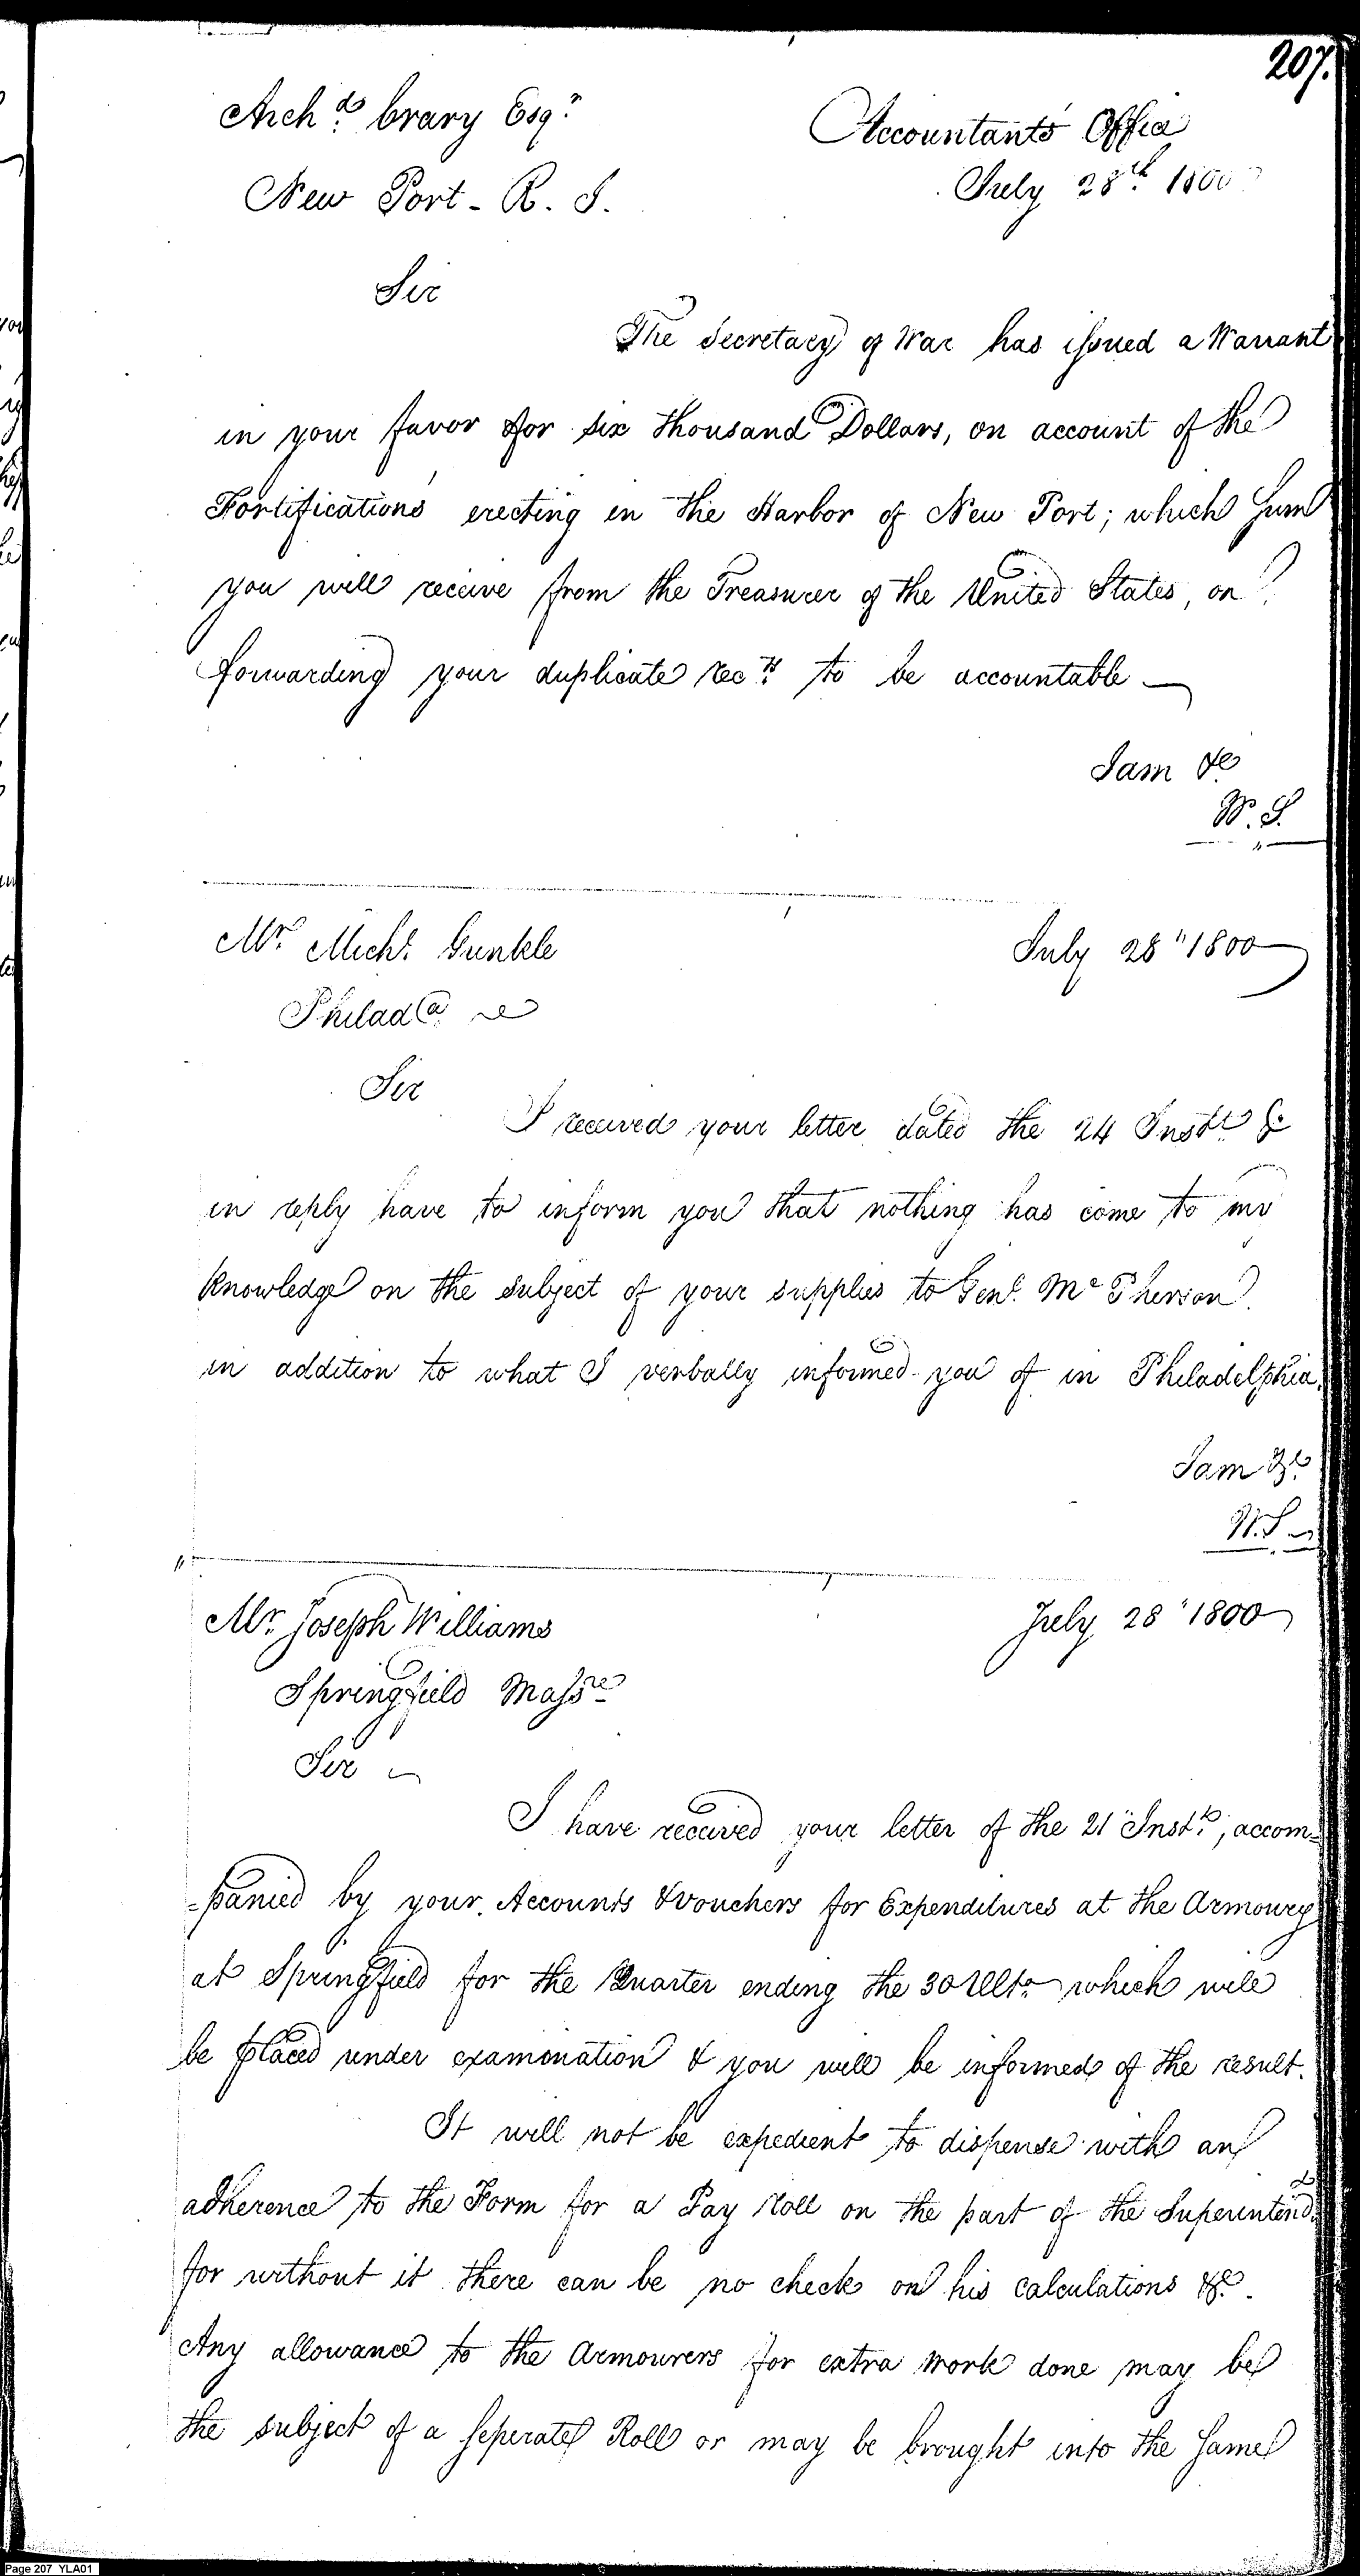 207.
Archd. Crary Esqr.
Accountants Office
New Port - R. I.
July 28th 1800
Sir
The Secretary of War has issued a Warrant
in your favor for six thousand Dollars, on account of the
Fortifications erecting in the Harbor of New Port; which Sum
you will receive from the Treasurer of the United States, on
forwarding your duplicate recets. to be accountable
I am &c
W. S.
Mr. Michl. Gunkle
July 28" 1800
Philada.
Sir
I received your letter dated the 24 Instt. &
in reply have to inform you that nothing has come to my
knowledge on the subject of your supplies to Genl. McPherson
in addition to what I verbally informed you of in Philadelphia.
I am &c.
W. S.
Mr. Joseph Williams
July 28" 1800
Springfield Masse
Sir
I have received your letter of the 21" Instt., accom=
=panied by your Accounts & Vouchers for Expenditures at the Armoury
at Springfield for the Quarter ending the 30 Ulto which will
be placed under examination & you will be informed of the result.
It will not be expedient to dispense with an
adherence to the Form for a Pay Roll on the part of the Superintendt.
for without it there can be no check on his calculations &c.
Any allowance to the Armourers for extra work done may be
the subject of a seperate Roll or may be brought into the Same
Page 207 YLA01